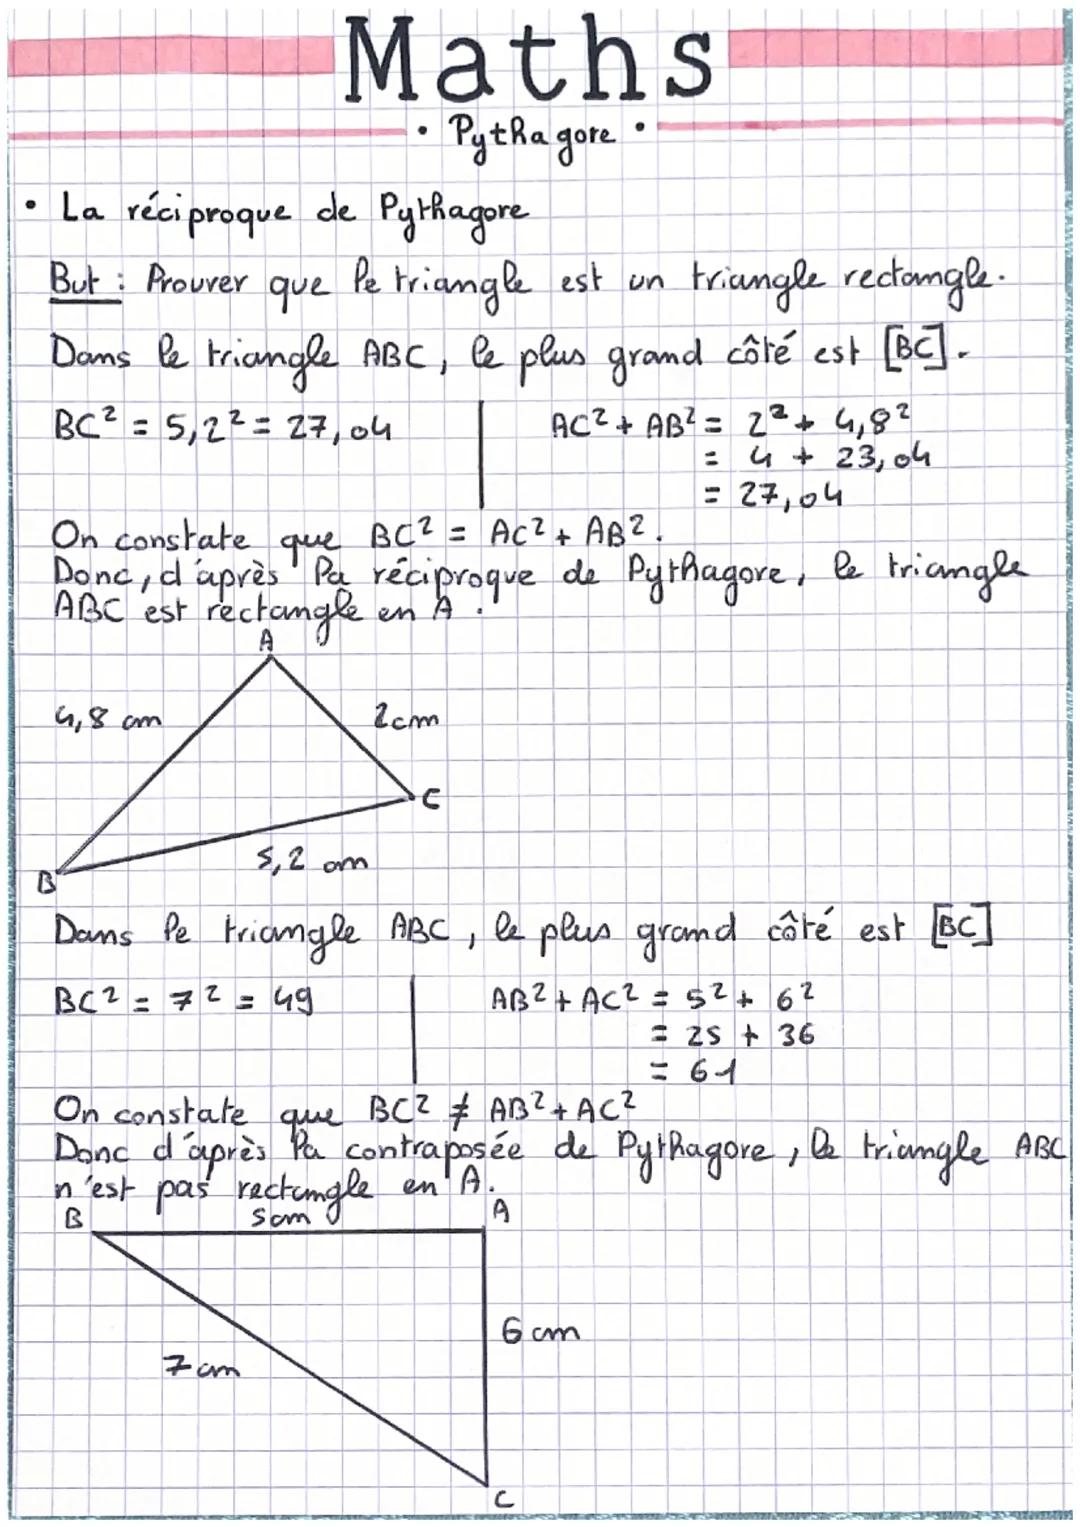 Maths
• Pythagore •
• La réciproque de Pythagore
But : Prouver que le triangle est un triangle rectangle.
Dans le triangle ABC, le plus grand côté est [BC].
BC² = 5,2² = 27,04 | AC² + AB² = 2² + 4,8²
= 4 + 23,04
= 27,04
On constate que BC² = AC² + AB².
Donc, d'après la réciproque de Pythagore, le triangle
ABC est rectangle en A.
A
4,8 cm 2cm
C
5,2 cm
B
Dans le triangle ABC, le plus grand côté est [BC]
BC² = 7² = 49 | AB² + AC² = 5² + 6²
= 25 + 36
= 61
On constate que BC² ≠ AB² + AC²
Donc d'après la contraposée de Pythagore, le triangle ABC
n'est pas rectangle en A.
B 5cm A
6 cm
7 cm
C